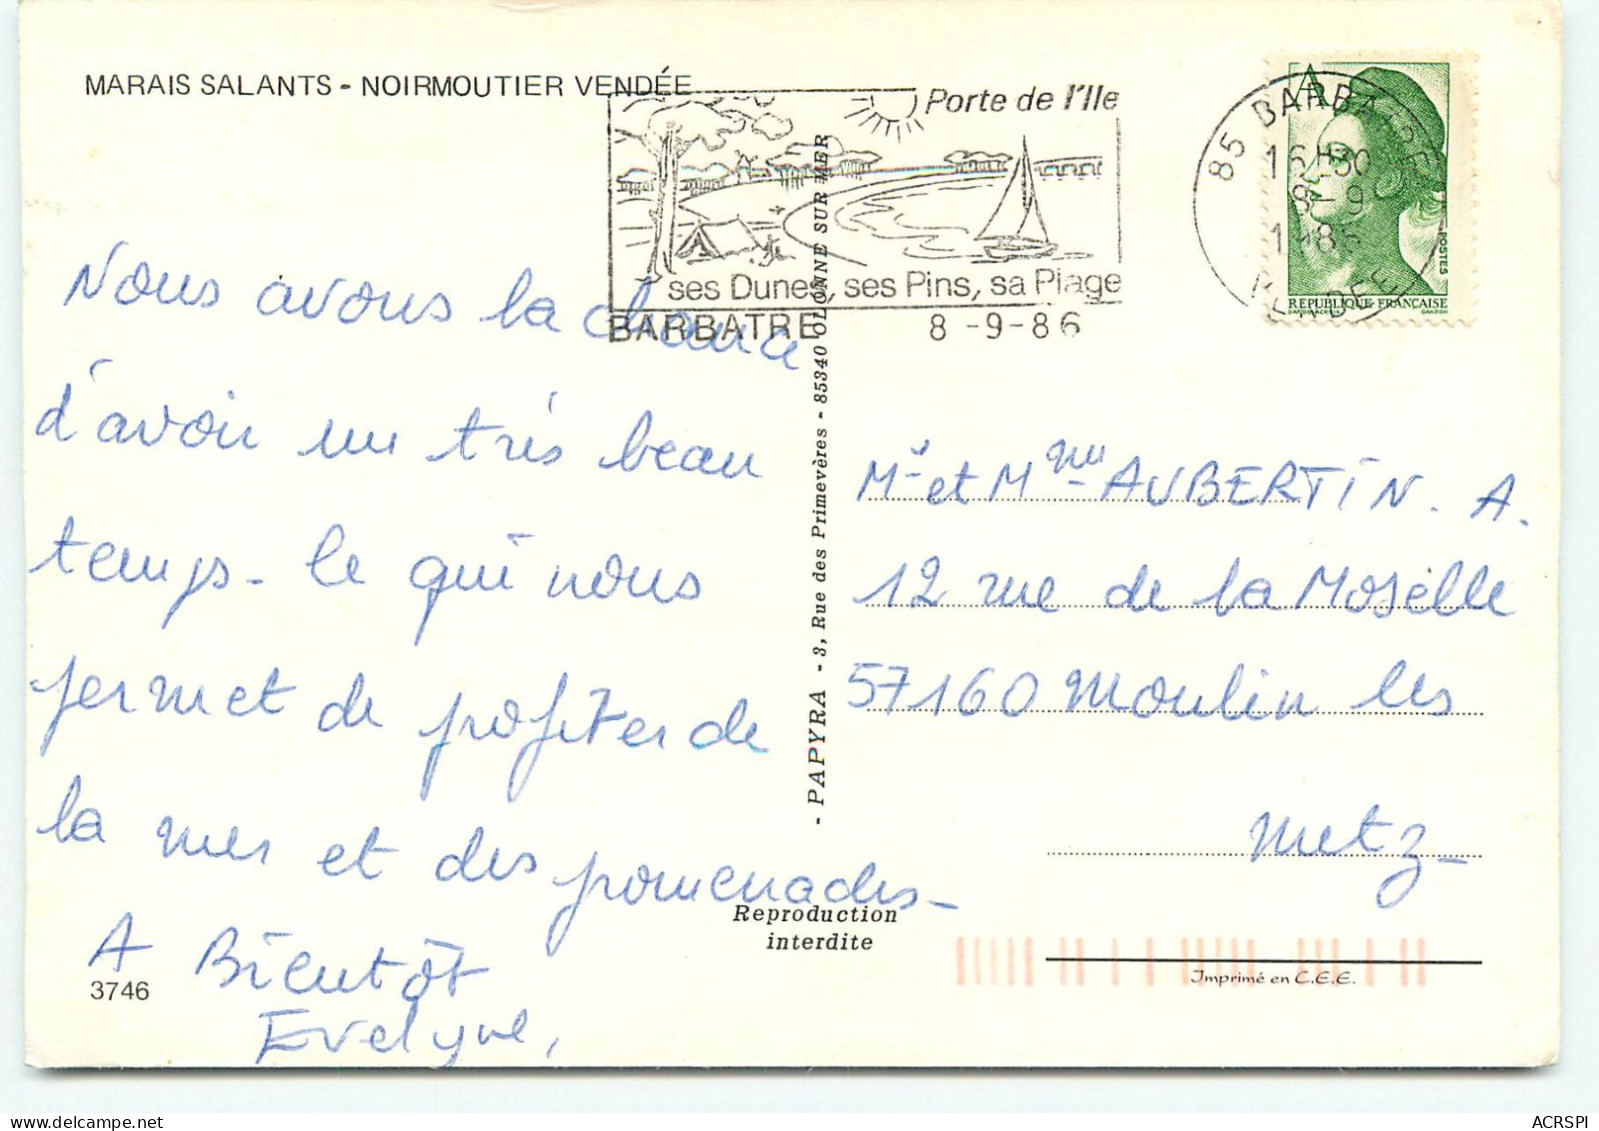 MARAIS SALANTS - NOIRMOUTIER VENDÉE
Porte de l'Ile
ses Dunes, ses Pins, sa Plage
BARBATRE 8 -9-86
85 BARBATRE
16H30
8-9
1986
VENDEE
A
POSTES
REPUBLIQUE FRANÇAISE
GANDON
Nous avons la chance
d'avoir un très beau
temps - le qui nous
permet de profiter de
la mer et des promenades -
A Bientôt
Evelyne,
3746
- PAPYRA - 3, Rue des Primevères - 85340 OLONNE SUR MER
Reproduction
interdite
Mr et Mme AUBERTIN. A.
12 rue de la Moselle
57160 Moulin les
Metz -
Imprimé en C.E.E.
ACRSPI